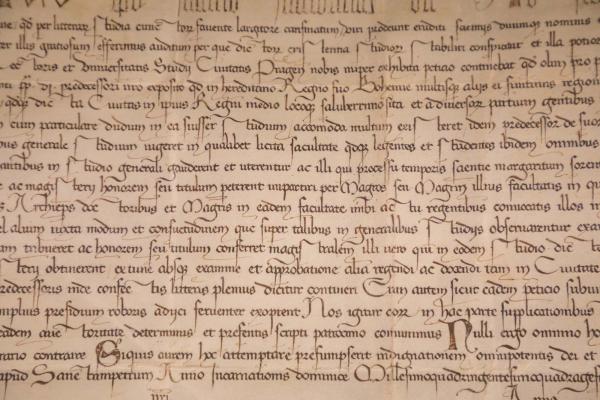 qd per litterar Studia cunc tor favente largitore confirmatum viri producunt eruditi
er illis gratiosum efferimus auditum per que dic tor eris lenna studior stabiliri et illa
toris et Universitatis Studii Civitatis Pragen nobis nuper exhibita peticio continebat qd olim pro p
di predecessori nro exposito qd in hereditario Regno suo Bohemie multisque alijs ei finitimis regioni
qdqz dic ta Civitas in ipius Regni medio locoqz saluberrimo sita et a diversor partium gentibus
cum particulare dudum in ea fuisset Studium accomoda multum exis teret idem predecessor de suor
bus generale Studium vigeret in qualibet licita facultate qdqz legentes et Studentes ibidem omnibus
antibus in Studio generali gauderent et uterentur ac illi qui processu temporis scientie margaritam
ac magis terij honorem seu titulum peterent impartiri per Magros seu Magrm illius facultatis in qu
Archieps doc toribus et Magris in eadem facultate inibi ac tu regentibus convocatis illos in
alium iuxta modum et consuetudinem que super talibus in generalibus Studijs observarentur exa
tribueret ac honorem seu titulum conferret magis tralem illi vero qui in eodem Studio dic t
terij obtinerent ex tunc absqz examine et approbatione alia regendi ac docendi tam in Civitate
predecessoris inde confec tis litteris plenius dicitur contineri Cum autem sicut eadem peticio subiu
amplius presidium roboris adijci ferventer exoptent Nos igitur in hac parte supplicationibus
eadem auc toritate determinus et presentis scripti patrocinio communimus Nulli ergo omnino ho
rario contraire Siquis autem hoc attemptare presumpserit indignationem omnipotentis dei et
apud Sanc tumpetrum Anno Incarnationis dominice Millesimoquadringentesimoquadrages